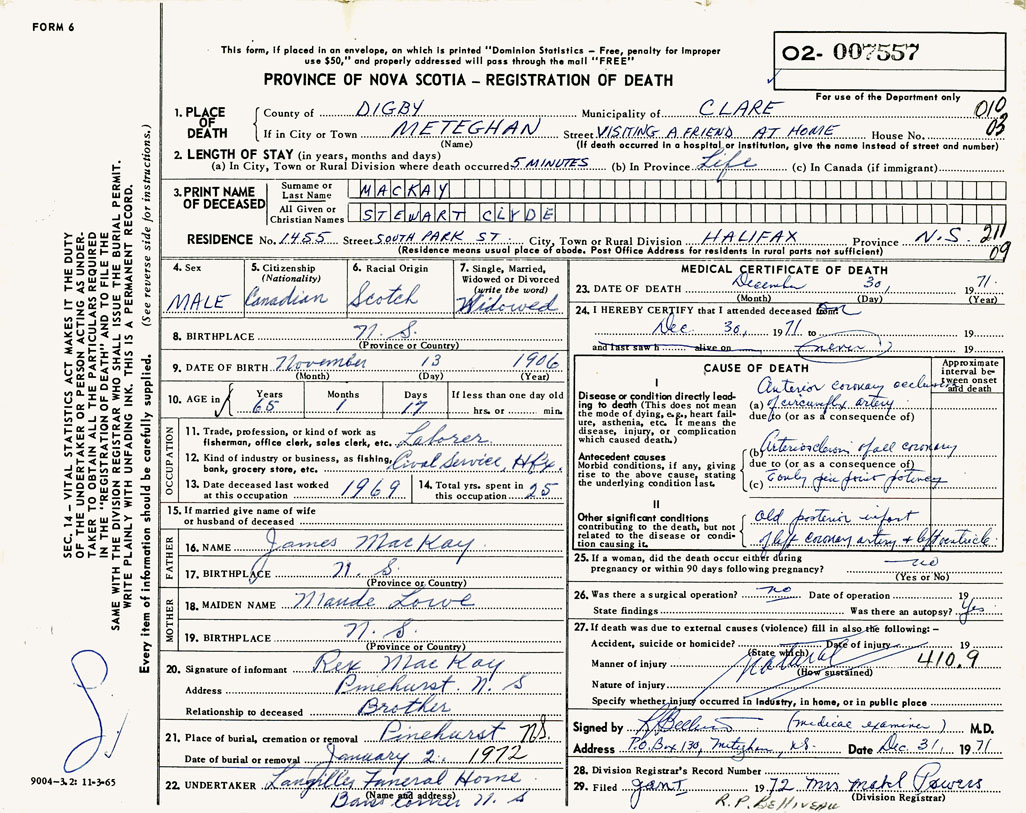 FORM 6
This form, if placed in an envelope, on which is printed "Dominion Statistics – Free, penalty for improper
use $50," and properly addressed will pass through the mail "FREE"
PROVINCE OF NOVA SCOTIA – REGISTRATION OF DEATH
02- 007557
For use of the Department only
1. PLACE OF DEATH County of DIGBY Municipality of CLARE 010
If in City or Town METEGHAN Street VISITING A FRIEND AT HOME House No. 03
(Name) (If death occurred in a hospital or institution, give the name instead of street and number)
2. LENGTH OF STAY (in years, months and days)
(a) In City, Town or Rural Division where death occurred 5 MINUTES (b) In Province Life (c) In Canada (if immigrant)
3. PRINT NAME OF DECEASED Surname or Last Name MACKAY
All Given or Christian Names STEWART CLYDE
RESIDENCE No. 1455 Street SOUTH PARK ST. City, Town or Rural Division HALIFAX Province N.S. 211
(Residence means usual place of abode. Post Office Address for residents in rural parts not sufficient) 09
SEC. 14 – VITAL STATISTICS ACT MAKES IT THE DUTY
OF THE UNDERTAKER OR PERSON ACTING AS UNDER-
TAKER TO OBTAIN ALL THE PARTICULARS REQUIRED
IN THE "REGISTRATION OF DEATH" AND TO FILE THE
SAME WITH THE DIVISION REGISTRAR WHO SHALL ISSUE THE BURIAL PERMIT.
WRITE PLAINLY WITH UNFADING INK. THIS IS A PERMANENT RECORD.
Every item of information should be carefully supplied. (See reverse side for instructions.)
4. Sex
MALE
5. Citizenship
(Nationality)
Canadian
6. Racial Origin
Scotch
7. Single, Married,
Widowed or Divorced
(write the word)
Widowed
8. BIRTHPLACE N. S.
(Province or Country)
9. DATE OF BIRTH November 13 1906
(Month) (Day) (Year)
10. AGE in Years Months Days If less than one day old
65 1 17 hrs. or min.
OCCUPATION
11. Trade, profession, or kind of work as
fisherman, office clerk, sales clerk, etc. Laborer
12. Kind of industry or business, as fishing,
bank, grocery store, etc. Cival Service, Hfx.
13. Date deceased last worked
at this occupation 1969
14. Total yrs. spent in
this occupation 25
15. If married give name of wife
or husband of deceased
FATHER
16. NAME James MacKay
17. BIRTHPLACE N. S.
(Province or Country)
MOTHER
18. MAIDEN NAME Maude Lowe
19. BIRTHPLACE N. S.
(Province or Country)
20. Signature of informant Rex MacKay
Address Pinehurst. N. S
Relationship to deceased Brother
21. Place of burial, cremation or removal Pinehurst N.S.
Date of burial or removal January 2, 1972
22. UNDERTAKER Langilles Funeral Home
(Name and address)
Corner N. S
MEDICAL CERTIFICATE OF DEATH
23. DATE OF DEATH December 30, 1971.
(Month) (Day) (Year)
24. I HEREBY CERTIFY that I attended deceased from: on
Dec. 30, 1971 to 19
and last saw h alive on (never) 19
CAUSE OF DEATH
Approximate
interval be-
tween onset
and death
I
Disease or condition directly lead-
ing to death (This does not mean
the mode of dying, e.g., heart fail-
ure, asthenia, etc. It means the
disease, injury, or complication
which caused death.)
Anterior coronary occlusion
(a) of circumflex artery
due to (or as a consequence of)
Antecedent causes
Morbid conditions, if any, giving
rise to the above cause, stating
the underlying condition last.
(b) Arteriosclerosis of all coronary
due to (or as a consequence of)
(c) only pin point patency
II
Other significant conditions
contributing to the death, but not
related to the disease or condi-
tion causing it.
Old posterior infarct
of left coronary artery & left ventricle.
25. If a woman, did the death occur either during
pregnancy or within 90 days following pregnancy? no
(Yes or No)
26. Was there a surgical operation? no Date of operation 19
State findings Was there an autopsy? Yes
27. If death was due to external causes (violence) fill in also the following: –
Accident, suicide or homicide? Date of injury 19
(State which)
Manner of injury natural 410.9
(How sustained)
Nature of injury
Specify whether injury occurred in industry, in home, or in public place
Signed by (medical examiner) M.D.
Address P.O. Box 130, Meteghan, N.S. Date Dec. 31, 1971
28. Division Registrar's Record Number
29. Filed Jan 1 1972 Mrs Mabel Powers
(Division Registrar)
R.P. BELLIVEAU
9004-3.2: 11-3-65